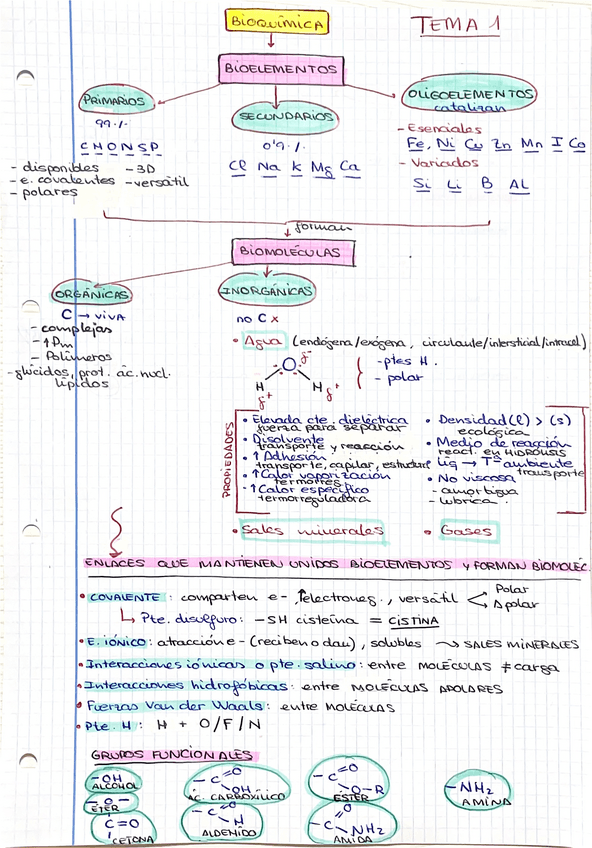 BIOQUÍMICA
TEMA 1
BIOELEMENTOS
PRIMARIOS
99.1.
C H O N S P
- disponibles - 3D
- e. covalentes - versátil
- polares
SECUNDARIOS
0'9.1.
Cl Na K Mg Ca
OLIGOELEMENTOS
catalizan
- Esenciales
Fe, Ni Cu Zn Mn I Co
- Variados
Si Li B AL
↓ forman
BIOMOLÉCULAS
ORGÁNICAS
C → viva
- complejas
- ↑Pm
- Polímeros
- glúcidos, prot. ác. nucl.
lípidos
INORGÁNICAS
no C x
• Agua (endógena/exógena, circulante/intersticial/intracel)
O δ-
H H
δ+ δ+
- ptes H.
- polar
PROPIEDADES
• Elevada cte. dieléctrica
fuerza para separar
• Disolvente
transporte y reacción
• ↑ Adhesión
transporte, capilar, estructura
• ↑ Calor vaporización
termorres
- ↑ Calor específico
termorreguladora
• Densidad (l) > (s)
ecológica
• Medio de reacción
react. en HIDRÓLISIS
Liq → Tª ambiente
transporte
• No viscosa
- amortigua
- lubrica.
• Sales minerales
• Gases
ENLACES QUE MANTIENEN UNIDOS BIOELEMENTOS Y FORMAN BIOMOLÉC.
• COVALENTE: comparten e-, ↑electroneg., versátil < Polar
Apolar
↳ Pte. disulfuro: -SH cisteína = CISTINA
• E. iónico: atracción e- (reciben o dan), solubles → SALES MINERALES
• Interacciones iónicas o pte. salino: entre MOLÉCULAS ≠ carga
• Interacciones hidrofóbicas: entre MOLÉCULAS APOLARES
• Fuerzas Van der Waals: entre MOLÉCULAS
• Pte. H: H + O/F/N
GRUPOS FUNCIONALES
-OH
ALCOHOL
-O-
ÉTER
C=O
CETONA
-C=O
OH
ÁC. CARBOXÍLICO
-C=O
H
ALDEHÍDO
-C=O
O-R
ÉSTER
-C=O
NH₂
AMIDA
-NH₂
AMINA